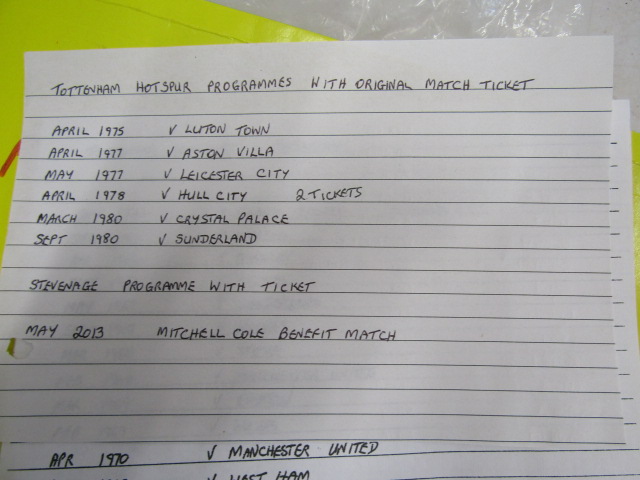 TOTTENHAM HOTSPUR PROGRAMMES WITH ORIGINAL MATCH TICKET
APRIL 1975 V LUTON TOWN
APRIL 1977 V ASTON VILLA
MAY 1977 V LEICESTER CITY
APRIL 1978 V HULL CITY 2 TICKETS
MARCH 1980 V CRYSTAL PALACE
SEPT 1980 V SUNDERLAND
STEVENAGE PROGRAMME WITH TICKET
MAY 2013 MITCHELL COLE BENEFIT MATCH
APR 1970 V MANCHESTER UNITED
V WEST HAM